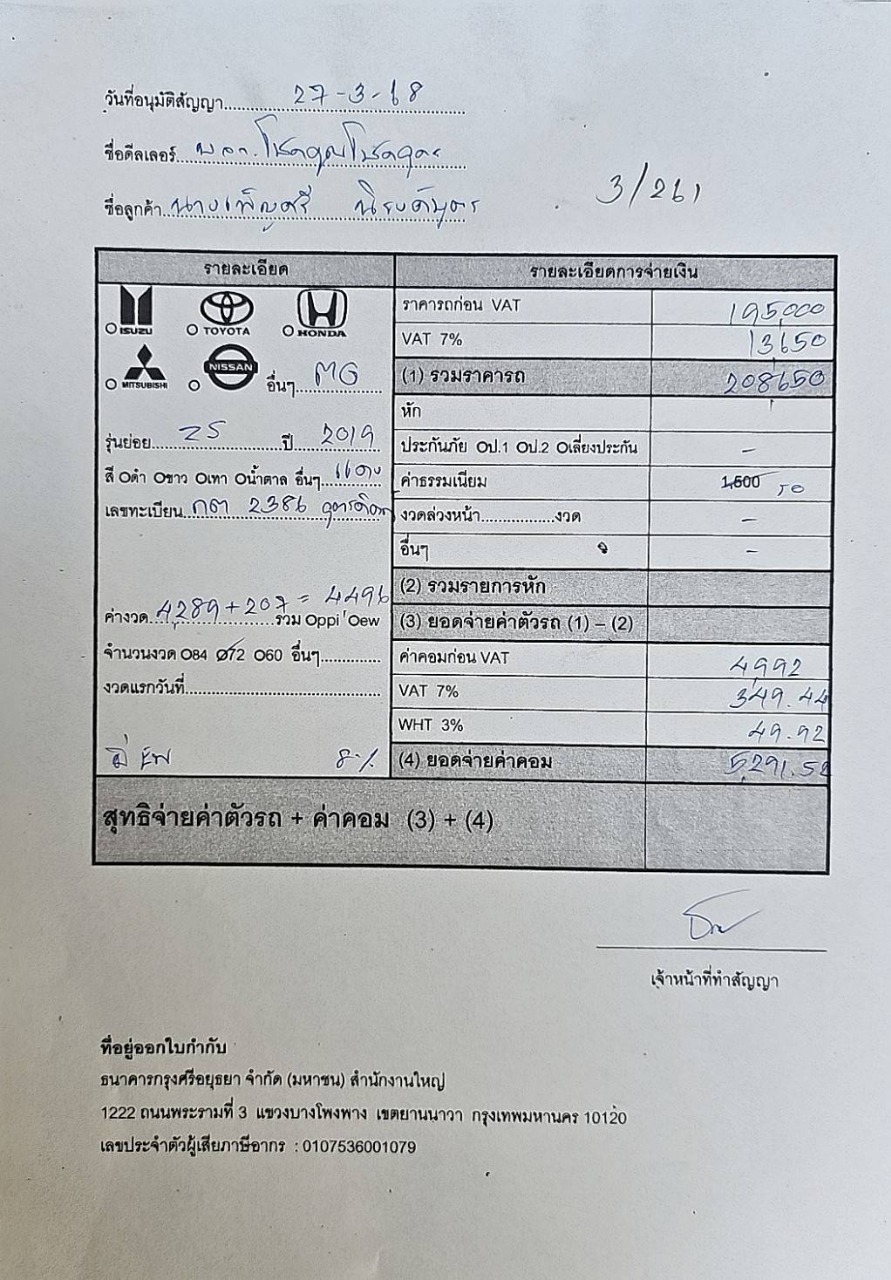 วันที่อนุมัติสัญญา 27-3-68
ชื่อดีลเลอร์ หจก.โชคคูณโชคอุดร
ชื่อลูกค้า นางเพ็ญศรี
3/261
รายละเอียด
รายละเอียดการจ่ายเงิน
ISUZU TOYOTA HONDA
MITSUBISHI NISSAN อื่นๆ MG
รุ่นย่อย ZS ปี 2019
สี Oดำ Oขาว Oเทา Oน้ำตาล อื่นๆ แดง
เลขทะเบียน กต 2386 อุตรดิตถ์
ค่างวด 4,289+207 = 4496 รวม Oppi Oew
จำนวนงวด O84 Ø72 O60 อื่นๆ
งวดแรกวันที่
8%
ราคารถก่อน VAT 195,000
VAT 7% 13650
(1) รวมราคารถ 208650
หัก
ประกันภัย Oป.1 Oป.2 Oเลี่ยงประกัน -
ค่าธรรมเนียม 1,500 50
งวดล่วงหน้า.................งวด -
อื่นๆ -
(2) รวมรายการหัก
(3) ยอดจ่ายค่าตัวรถ (1) – (2)
ค่าคอมก่อน VAT 4,992
VAT 7% 349.44
WHT 3% 49.92
(4) ยอดจ่ายค่าคอม 5,291.52
สุทธิจ่ายค่าตัวรถ + ค่าคอม (3) + (4)
เจ้าหน้าที่ทำสัญญา
ที่อยู่ออกใบกำกับ
ธนาคารกรุงศรีอยุธยา จำกัด (มหาชน) สำนักงานใหญ่
1222 ถนนพระรามที่ 3 แขวงบางโพงพาง เขตยานนาวา กรุงเทพมหานคร 10120
เลขประจำตัวผู้เสียภาษีอากร : 0107536001079